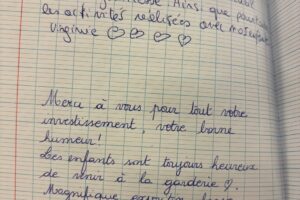 Ainsi que pour
les activités réalisées avec
Virginie ♡ ♡ ♡ ♡
Merci à vous pour tout votre
investissement, votre bonne
humeur!
Les enfants sont toujours heureux
de venir à la garderie
Magnifique